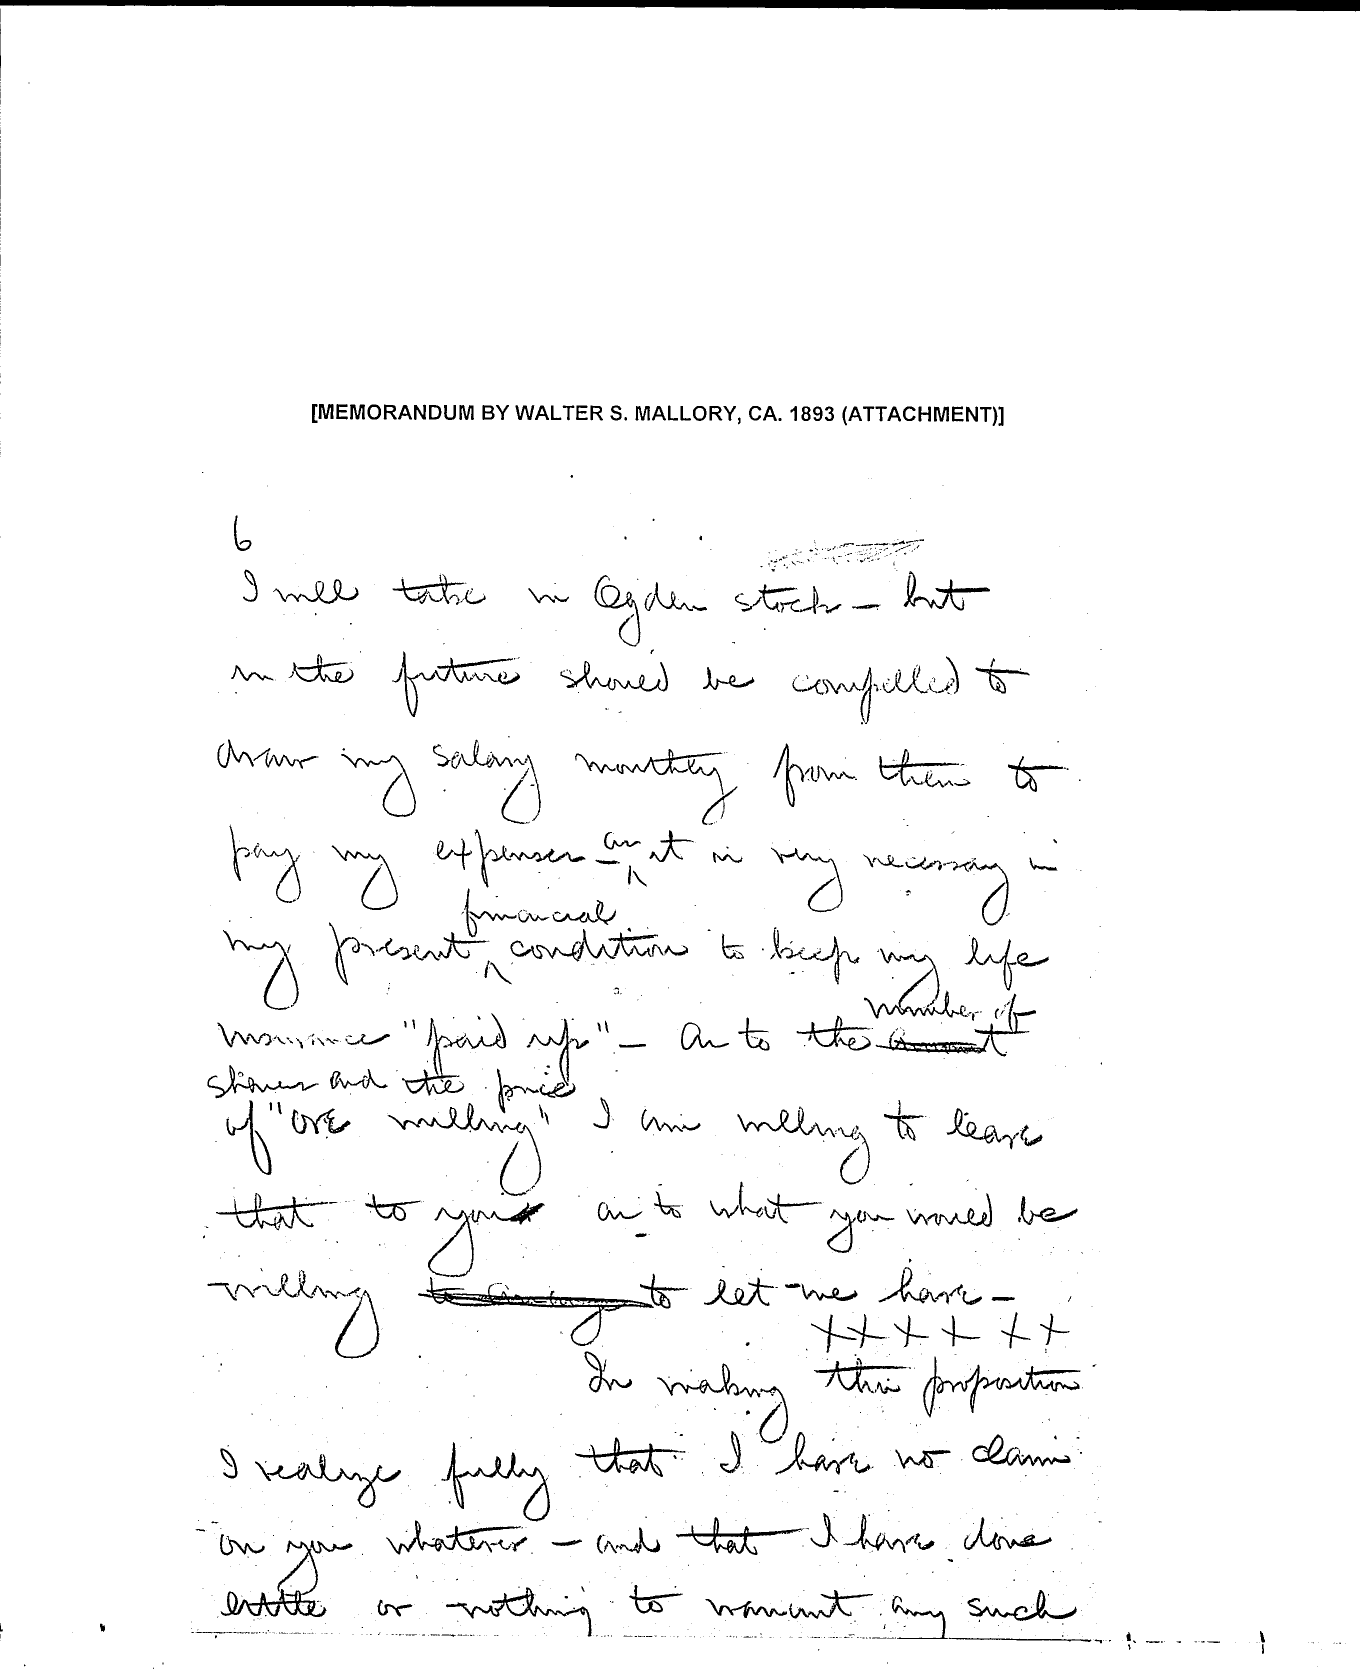 [MEMORANDUM BY WALTER S. MALLORY, CA. 1893 (ATTACHMENT)]
6
I will take in Ogden stock – but
in the future should be compelled to
draw my salary monthly from them to
pay my expenses – as it is very necessary in
financial
my present ^ condition to keep my life
number of
insurance "paid up" – As to the amount
shares and the price
of "ore milling" I am willing to leave
that to you as to what you would be
willing to arrange to let me have –
x x x x x x
In making this proposition
I realize fully that I have no claim
on you whatever – and that I have done
little or nothing to warrant any such